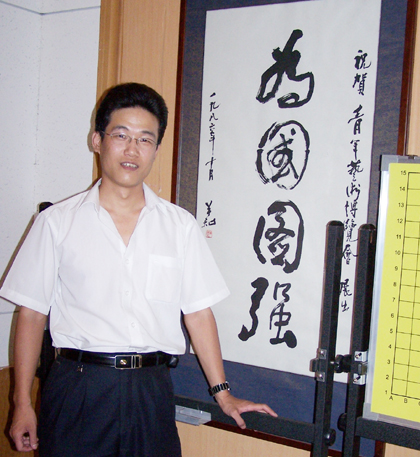 祝賀青年藝術博覽會展出
為國圖强
一九八五年十月
15
14
13
12
11
10
9
8
7
6
5
4
3
2
1
A B C D